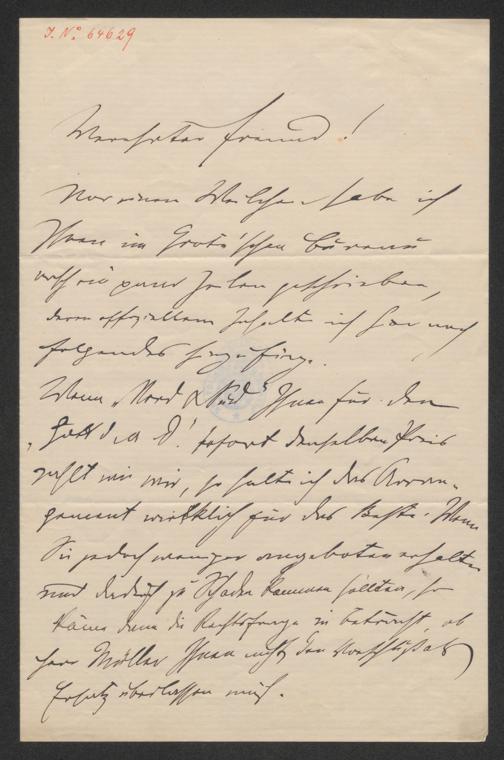 J. No. 64629
Verehrter Freund!
Vor einem Weilchen habe ich
Ihnen im Grote'schen Bureau
ein paar Zeilen geschrieben,
deren offiziellem Inhalte ich hier noch
folgendes hinzufüge.
Wenn „Nord & Süd" Ihnen für den
sofort denselben Preis
zahlt wie mir, so halte ich das Arran-
gement wirklich für das Beste. Wenn
Sie jedoch weniger angeboten erhalten
und dadurch zu Schaden kommen sollten, so
käme denn die Rechtsfrage in Betracht, ob
Herr Müller Ihnen nicht den als
Ersatz überlassen muß.